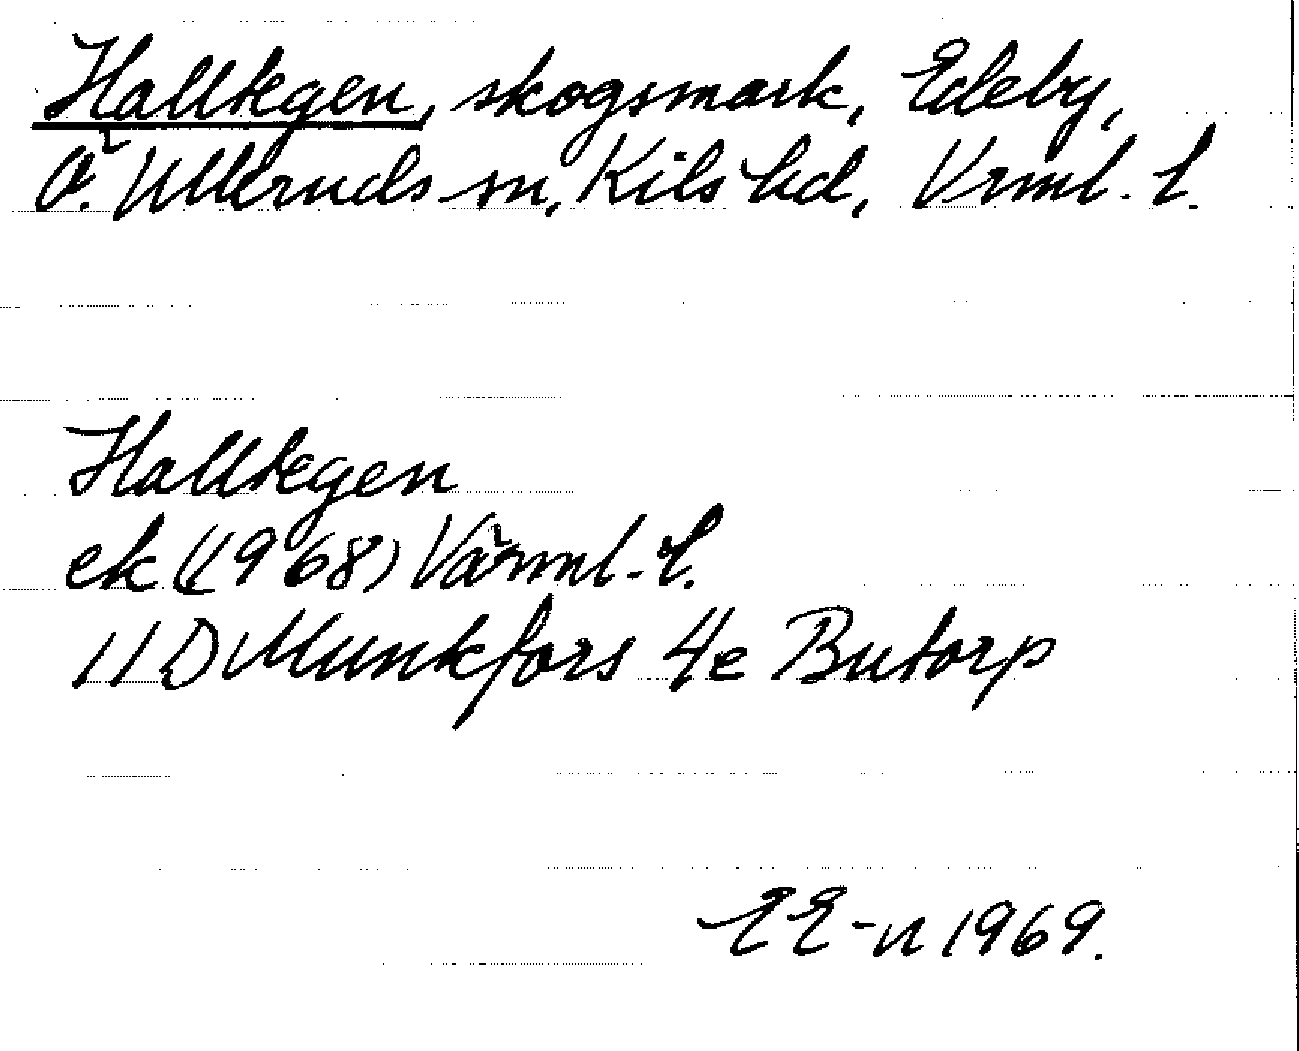 Halltegen, skogsmark, Edeby,
Ö. Ulleruds sn, Kils hd, Vrml. l.
Halltegen
ek (1968) Värml. l.
11 D Munkfors 4e Butorp
EE-n 1969.